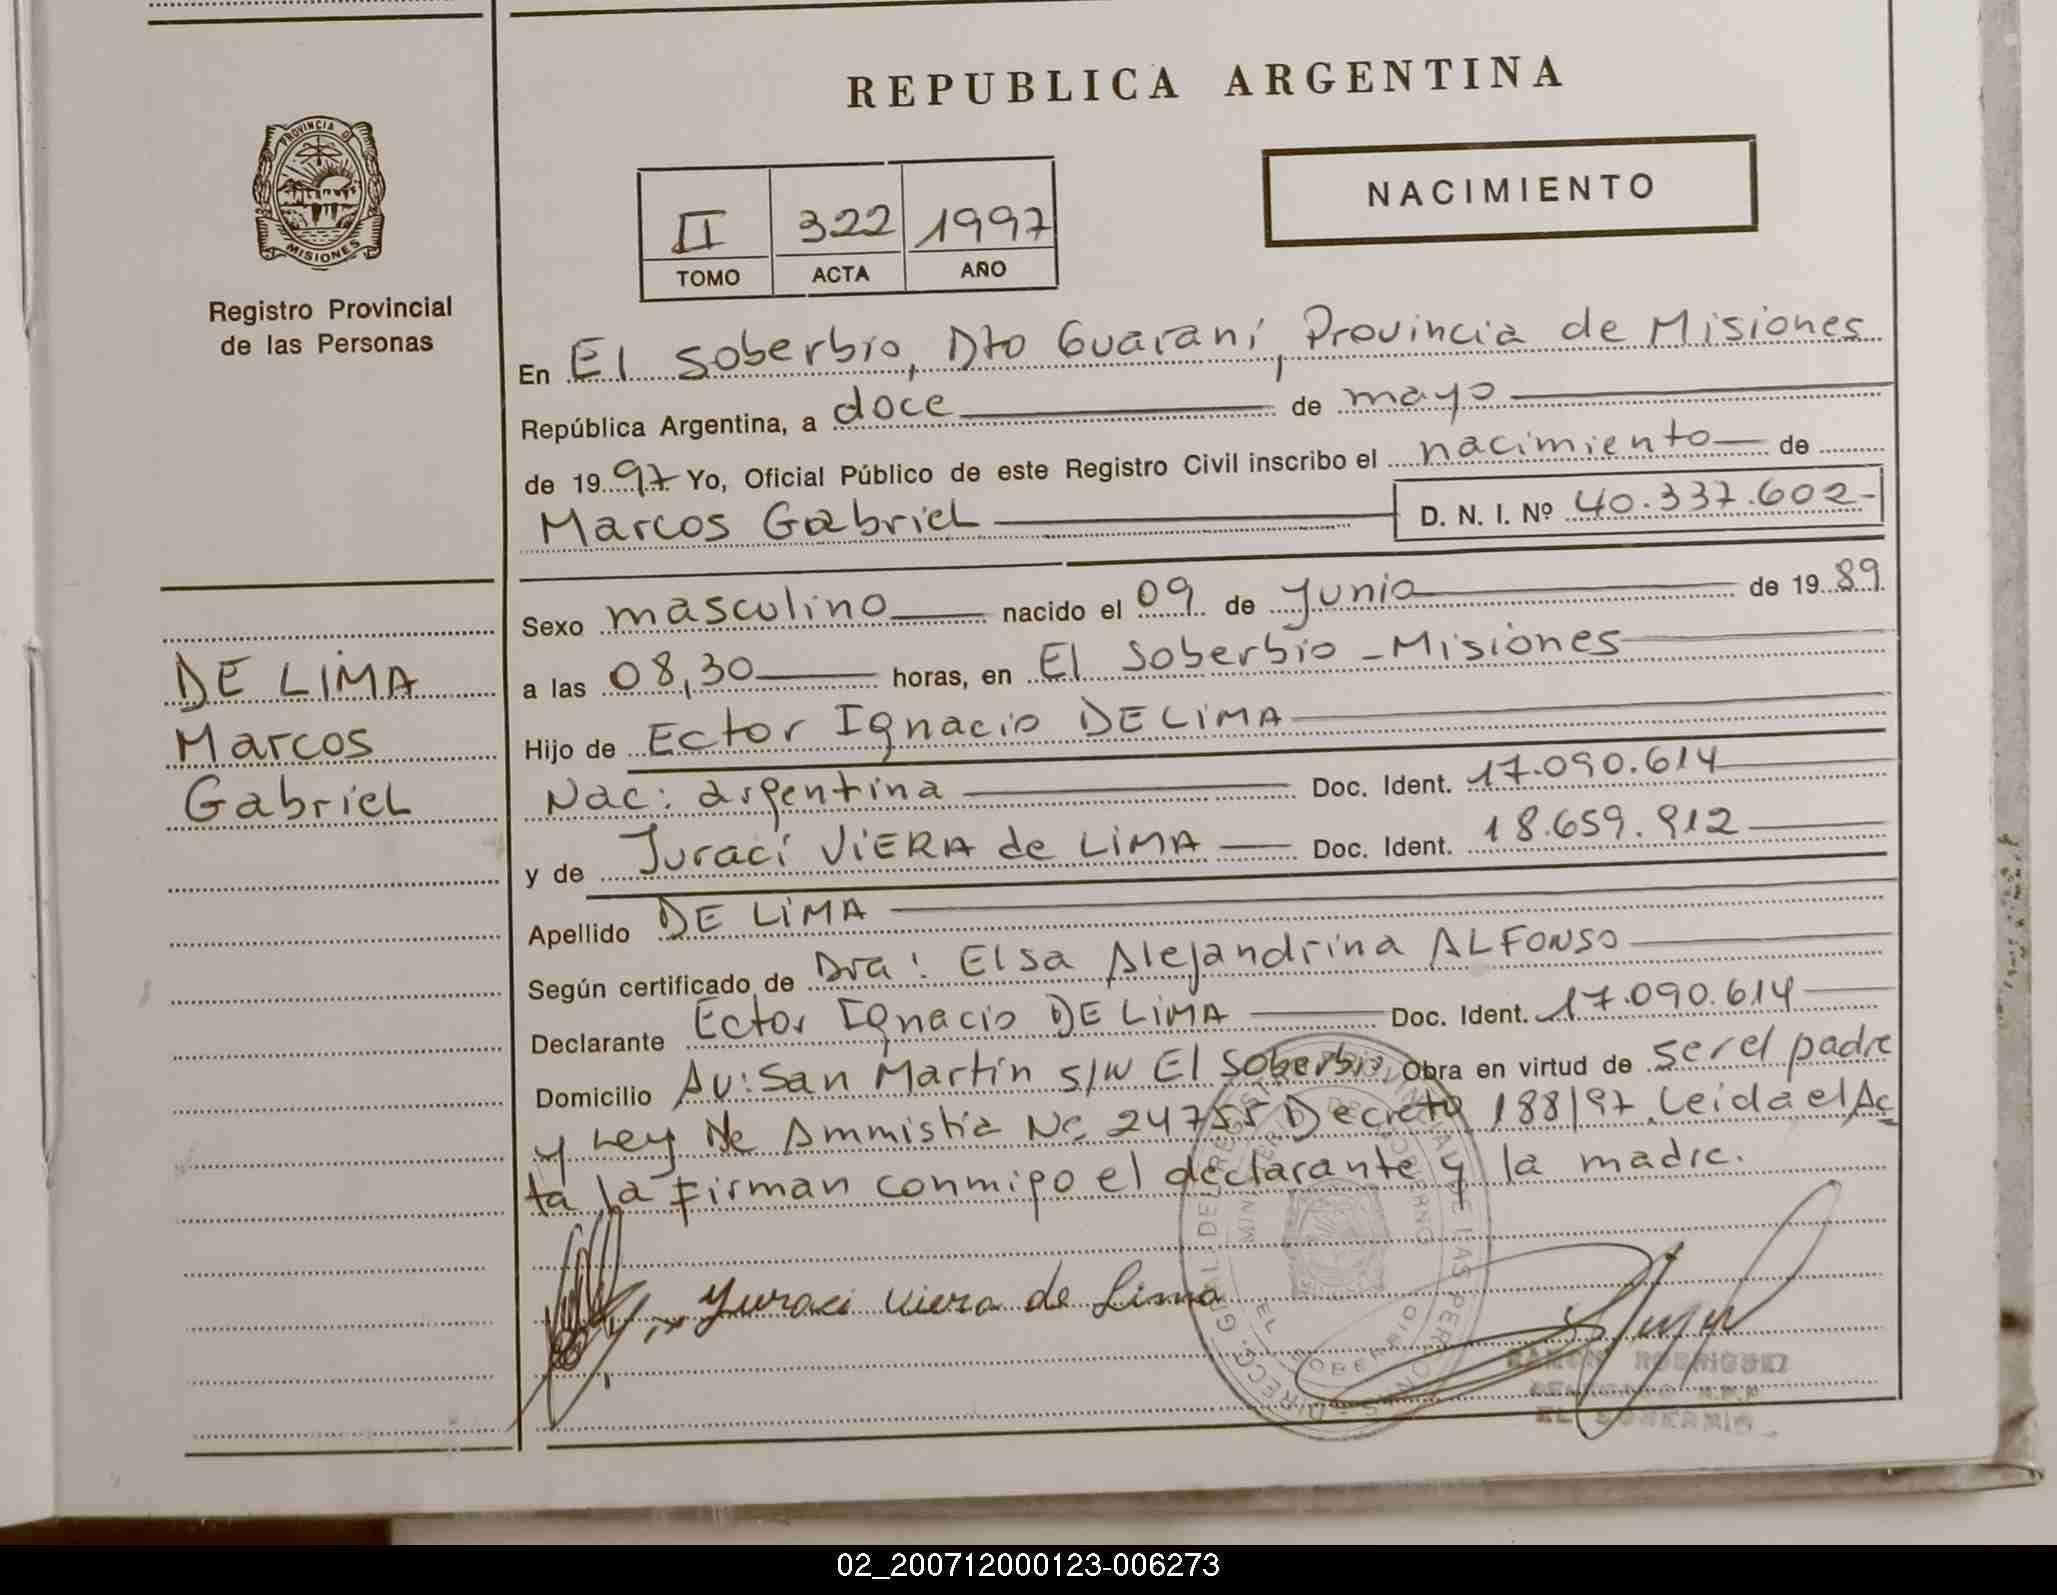 REPUBLICA ARGENTINA
PROVINCIA D
MISIONES
Registro Provincial
de las Personas
II 322 1997
TOMO ACTA AÑO
NACIMIENTO
En El Soberbio, Dto Guaraní, Provincia de Misiones
República Argentina, a doce de mayo
de 1997 Yo, Oficial Público de este Registro Civil inscribo el nacimiento de
Marcos Gabriel D. N. I. Nº 40.337.602-
Sexo masculino nacido el 09 de Junio de 1989
a las 08,30 horas, en El Soberbio - Misiones
Hijo de Ector Ignacio DE LIMA
Nac: argentina Doc. Ident. 17.090.614
y de Juraci VIERA de LIMA Doc. Ident. 18.659.912
Apellido DE LIMA
Según certificado de Dra: Elsa Alejandrina ALFONSO
Declarante Ector Ignacio DE LIMA Doc. Ident. 17.090.614
Domicilio Av: San Martín s/N El Soberbio, Obra en virtud de ser el padre
y Ley de Ammistia Nº 24755 Decreto 188/97. Leida el Ac
ta la firman conmigo el declarante y la madre.
DE LIMA
Marcos
Gabriel
Yuraci Viera de Lima
EL SOBERBIO
RAMON RODRIGUEZ
DELEGADO R.P.P
EL SOBERBIO
02_200712000123-006273